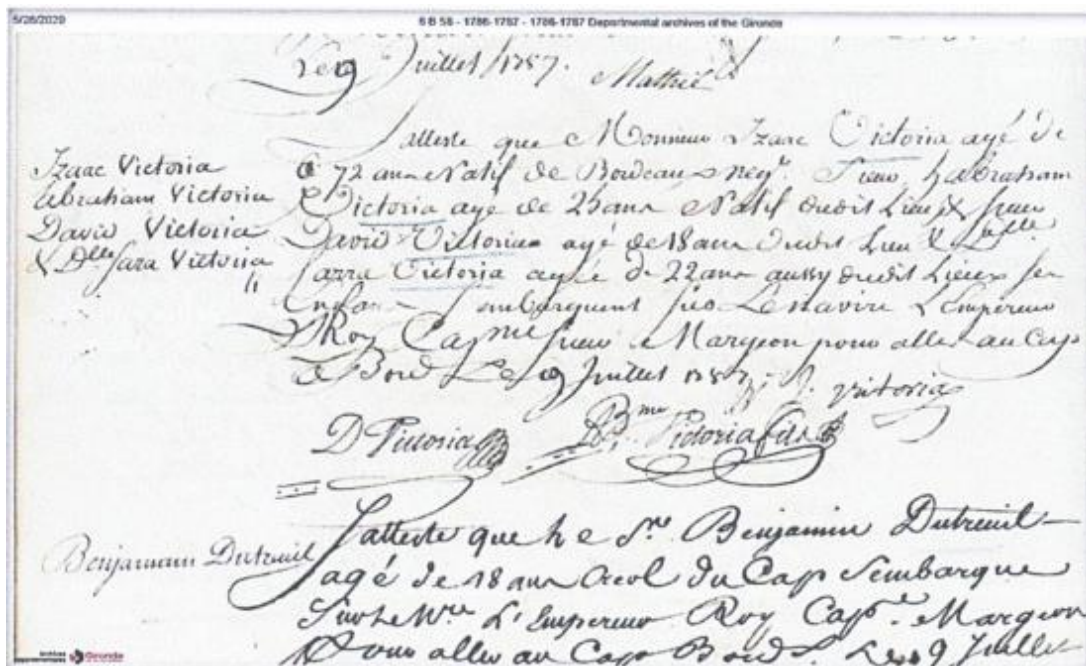 5/28/2020
6 B 58 - 1786-1787 - 1786-1787 Departmental archives of the Gironde
Le 9 Juillet 1787. Mathieu
Izaac Victoria
Abraham Victoria
David Victoria
& Dlle Sara Victoria
J'atteste que Monsieur Izaac Victoria agé de
72 ans Natif de Bordeaux neg.t Sieur habraham
Victoria agé de 25 ans Natif dudit Lieu & Sieur
David Victoria agé de 18 ans dudit Lieu & Dlle
Sarra Victoria agée de 22 ans aussy dudit Lieux ses
Enfans s'embarquent sur Le navire L'empereur
Roy Capne Sieur Margeon pour aller au Cap
a Bord Le 9 Juillet 1787 victoria
D Victoria Victoria fils
Benjamain Dutreuil
J'atteste que Le Sr. Benjamin Dutreuil
agé de 18 ans Creol du Cap s'embarque
sur Le Nre L'Empereur Roy Cape. Margeon
Pour aller au Cap Bord. Le 9 Juillet
archives départementales Gironde